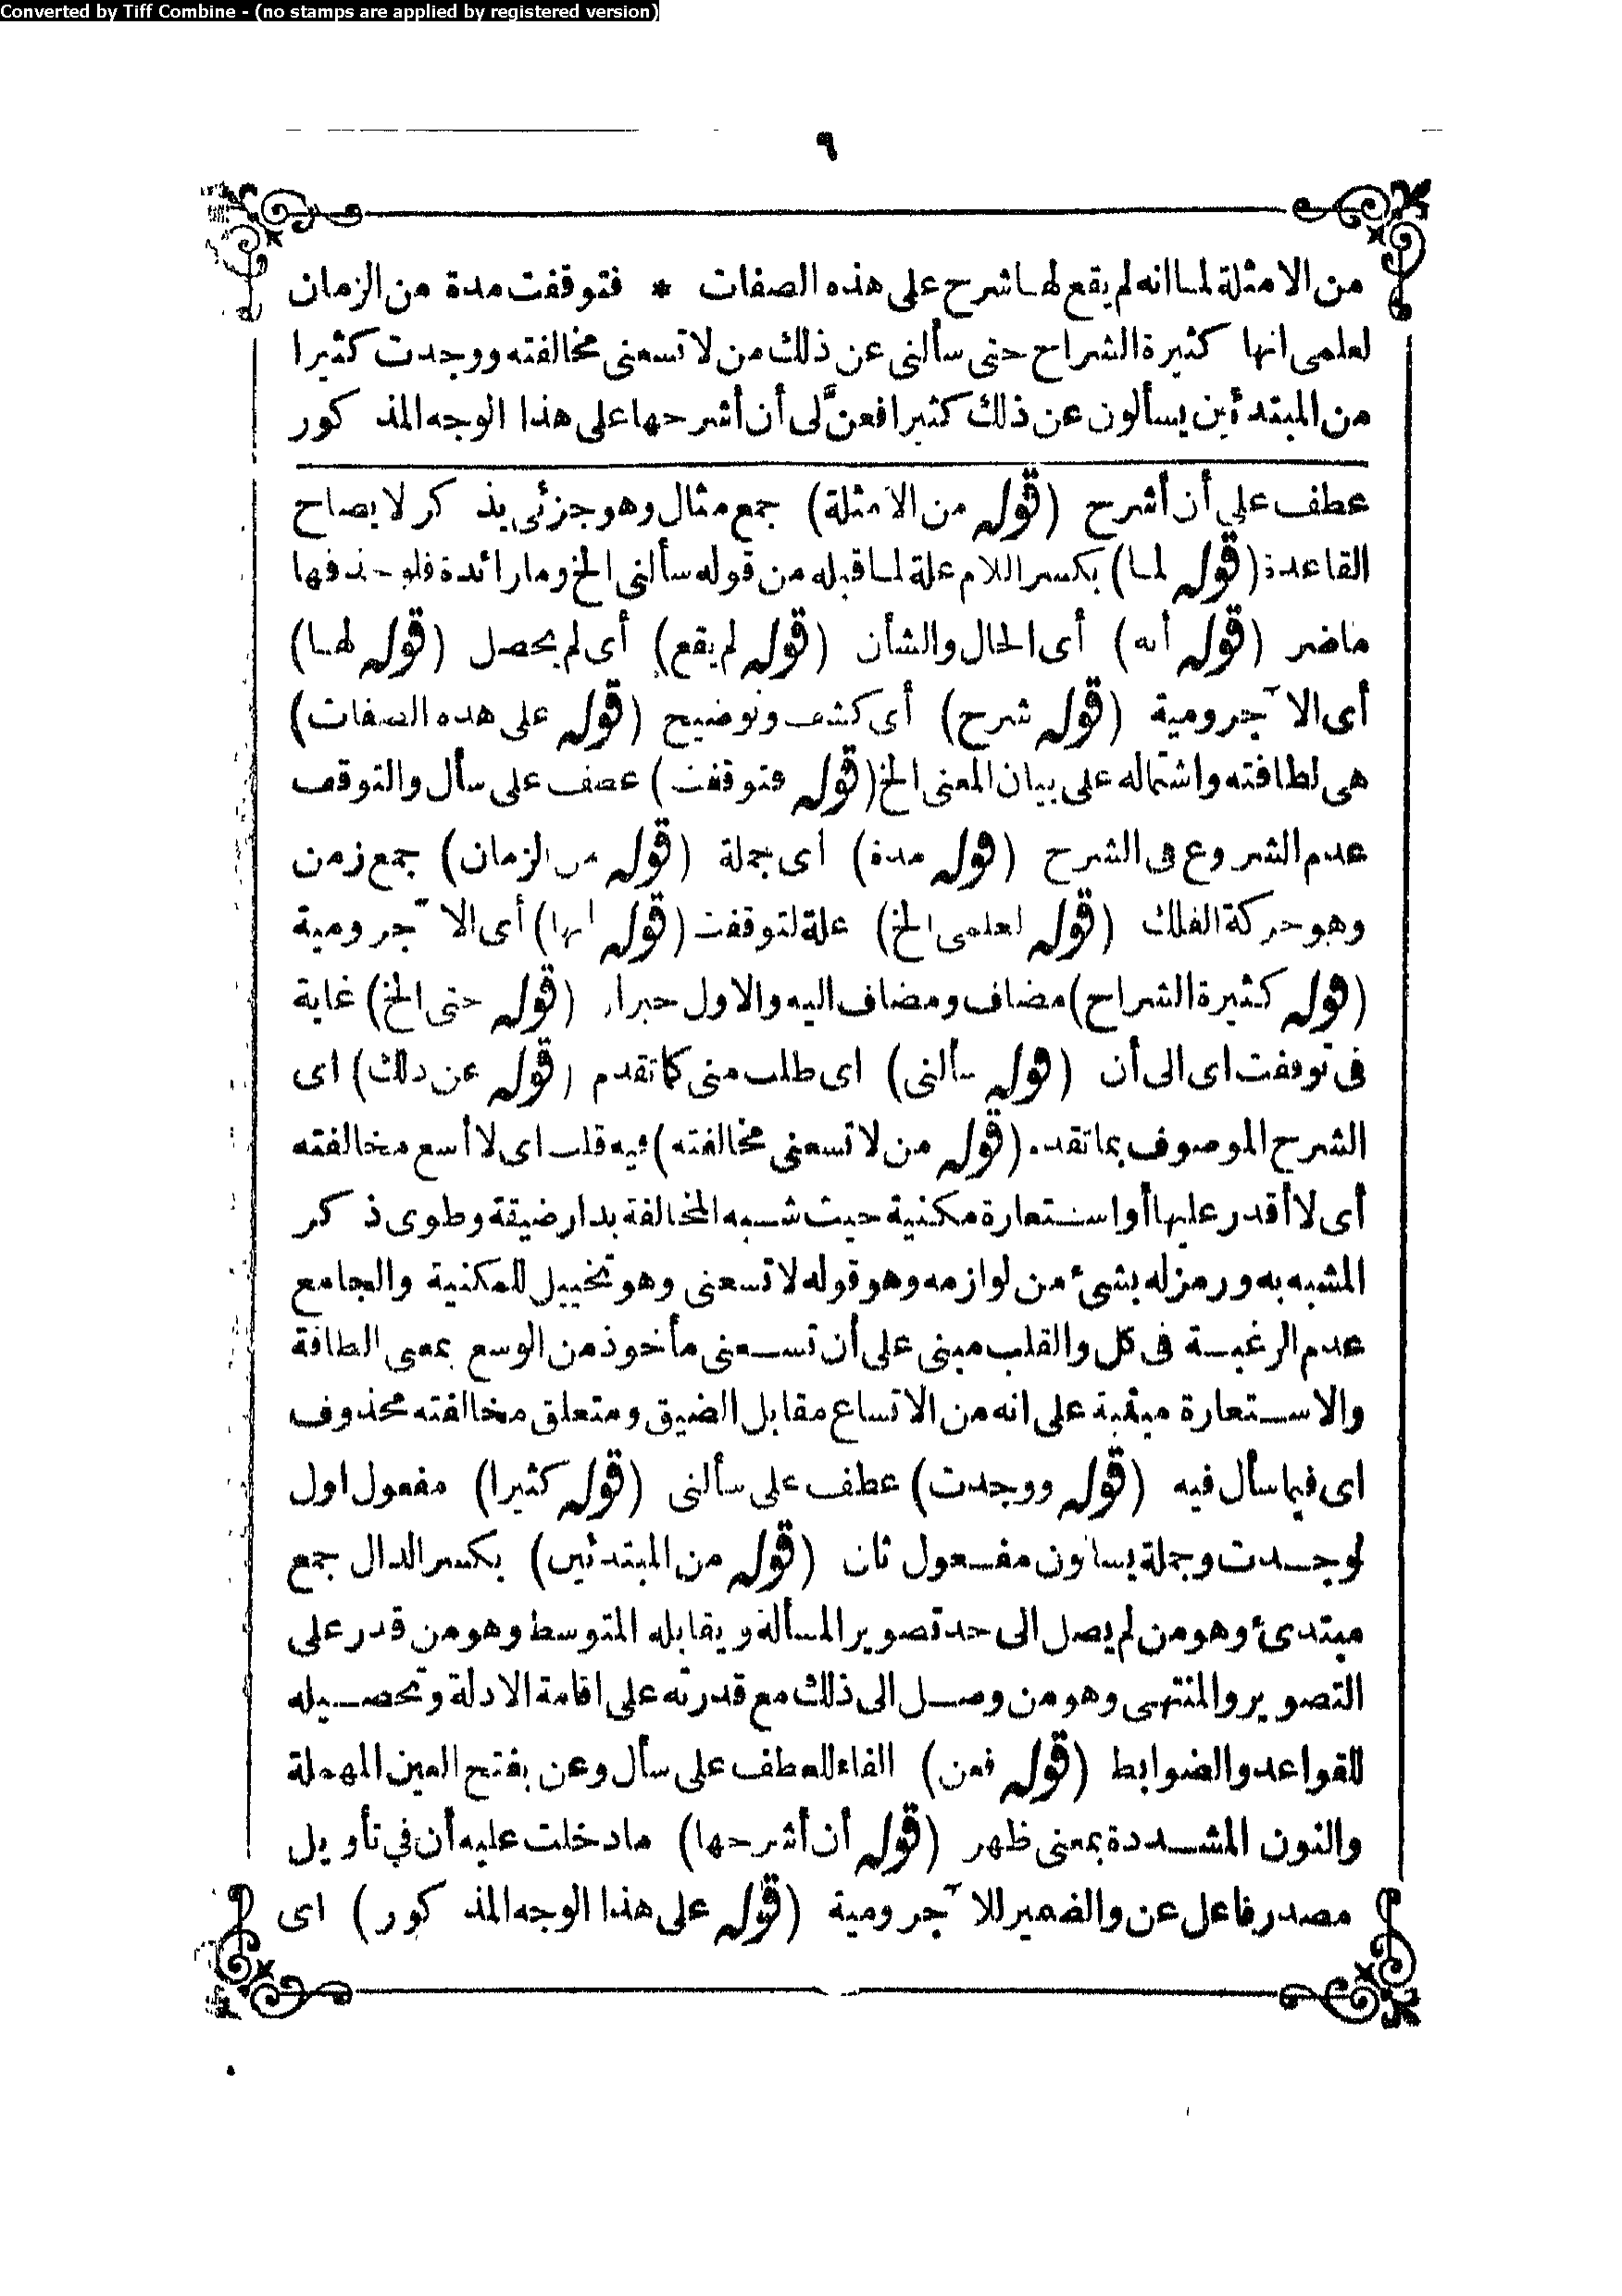 Converted by Tiff Combine - (no stamps are applied by registered version)
٩
من الامثلة لما انه لم يقع لها شرح على هذه الصفات * فتوقفت مدة من الزمان
لعلمى انها كثيرة الشراح حتى سألنى عن ذلك من لا تسعنى مخالفته ووجدت كثيرا
من المبتدئين يسألون عن ذلك كثيرا فعنّ لى أن أشرحها على هذا الوجه المذكور
عطف على أن أشرح (قوله من الامثلة) جمع مثال وهو جزئى يذكر لايضاح
القاعدة (قوله لما) بكسر اللام علة لما قبله من قوله سألنى الخ وما زائدة فلو حذفها
ماضر (قوله أنه) أى الحال والشأن (قوله لم يقع) أى لم يحصل (قوله لها)
أى الآجرومية (قوله شرح) أى كشف وتوضيح (قوله على هذه الصفات)
هى لطافته واشتماله على بيان المعنى الخ (قوله فتوقفت) عطف على سأل والتوقف
عدم الشروع فى الشرح (قوله مدة) أى جملة (قوله من الزمان) جمع زمن
وهو حركة الفلك (قوله لعلمى الخ) علة لتوقفت (قوله انها) أى الآجرومية
(قوله كثيرة الشراح) مضاف ومضاف اليه والاول خبران (قوله حتى الخ) غاية
فى توقفت اى الى أن (قوله سألنى) اى طلب منى كما تقدم (قوله عن ذلك) اى
الشرح الموصوف بما تقدم (قوله من لا تسعنى مخالفته) فيه قلب اى لا أسع مخالفته
أى لا أقدر عليها أو استعارة مكنية حيث شبه المخالفة بدار ضيقة وطوى ذكر
المشبه به ورمز له بشئ من لوازمه وهو قوله لا تسعنى وهو تخييل للمكنية والجامع
عدم الرغبة فى كل والقلب مبنى على أن تسعنى مأخوذ من الوسع بمعنى الطاقة
والاستعارة مبنية على انه من الاتساع مقابل الضيق ومتعلق مخالفته محذوف
اى فيما سأل فيه (قوله ووجدت) عطف على سألنى (قوله كثيرا) مفعول اول
لوجدت وجملة يسألون مفعول ثان (قوله من المبتدئين) بكسر الدال جمع
مبتدئ وهو من لم يصل الى حد تصوير المسألة ويقابله المتوسط وهو من قدر على
التصوير والمنتهى وهو من وصل الى ذلك مع قدرته على اقامة الادلة وتحصيله
للقواعد والضوابط (قوله فعن) الفاء للعطف على سأل وعن بفتح العين المهملة
والنون المشددة بمعنى ظهر (قوله أن أشرحها) ما دخلت عليه أن في تأويل
مصدر فاعل عن والضمير للآجرومية (قوله على هذا الوجه المذكور) اى